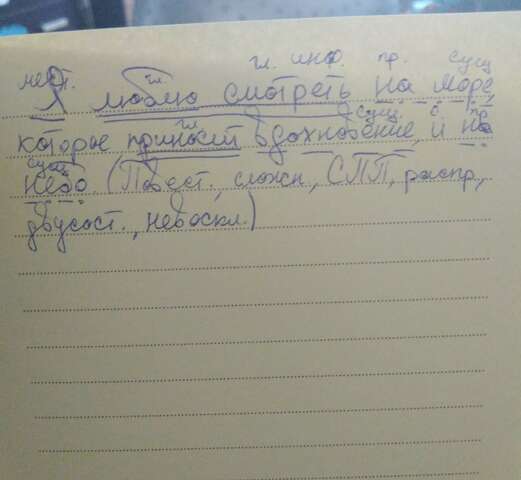 мест. гл. гл. инф. пр. сущ
Я люблю смотреть на море,
гл. сущ. с. пр
которое приносит вдохновение, и на
сущ
небо. (Повест., сложн, СПП, распр,
двусост., невоскл.)